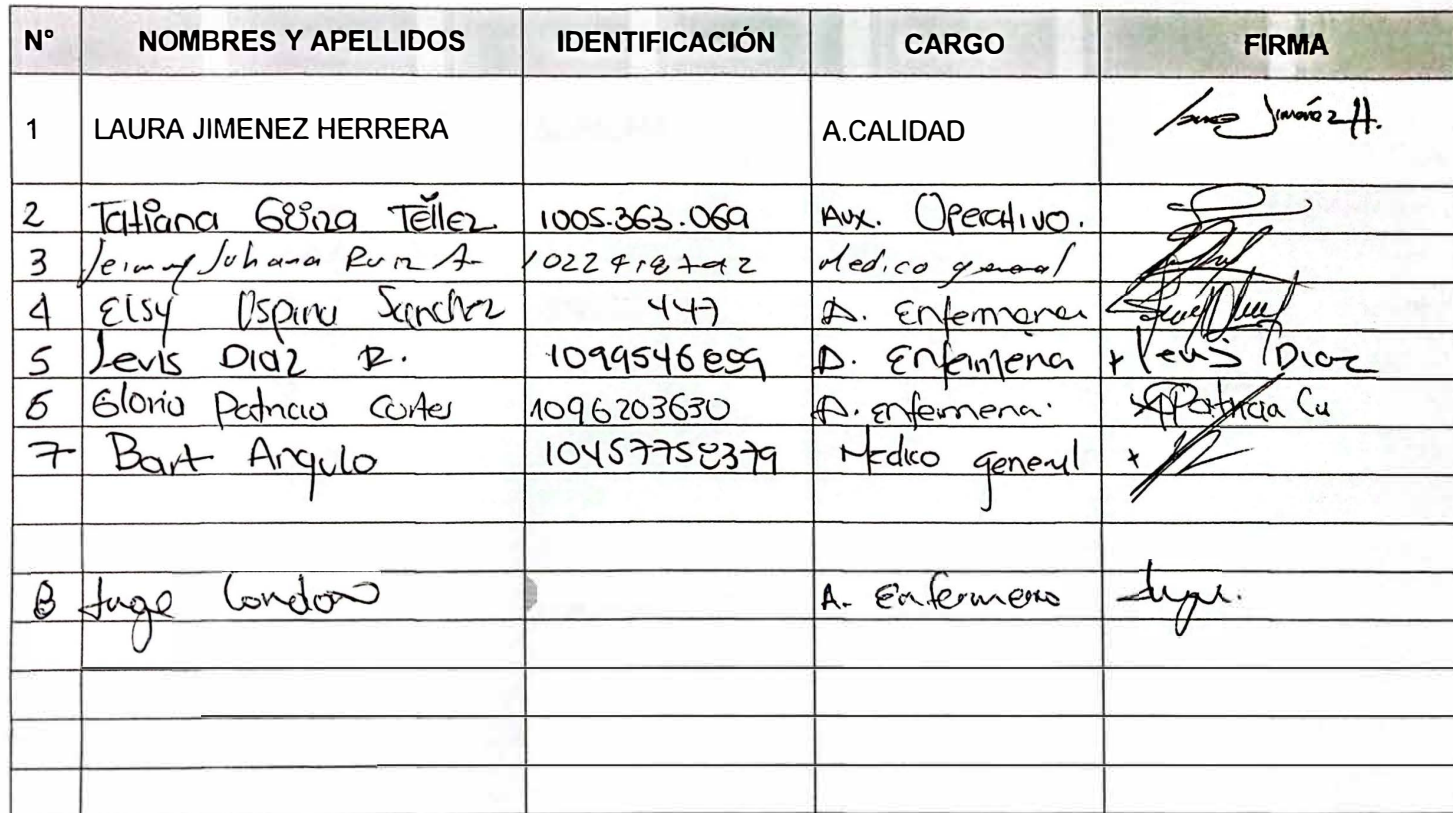 N° NOMBRES Y APELLIDOS IDENTIFICACIÓN CARGO FIRMA
1 LAURA JIMENEZ HERRERA A.CALIDAD Jimenez H.
2 Tatiana Güiza Téllez 1005.363.069 Aux. Operativo.
3 Johana Medico general
4 Elsy Ospina Sanchez 447 A. Enfermera
5 Levis Diaz R. A. Enfermera + Levis Diaz
6 Gloria Patricia Cortes 1096203630 A. enfermera. Patricia Cu
7 Bart Angulo 10457758379 Medico general +
8 Londoño A. Enfermero